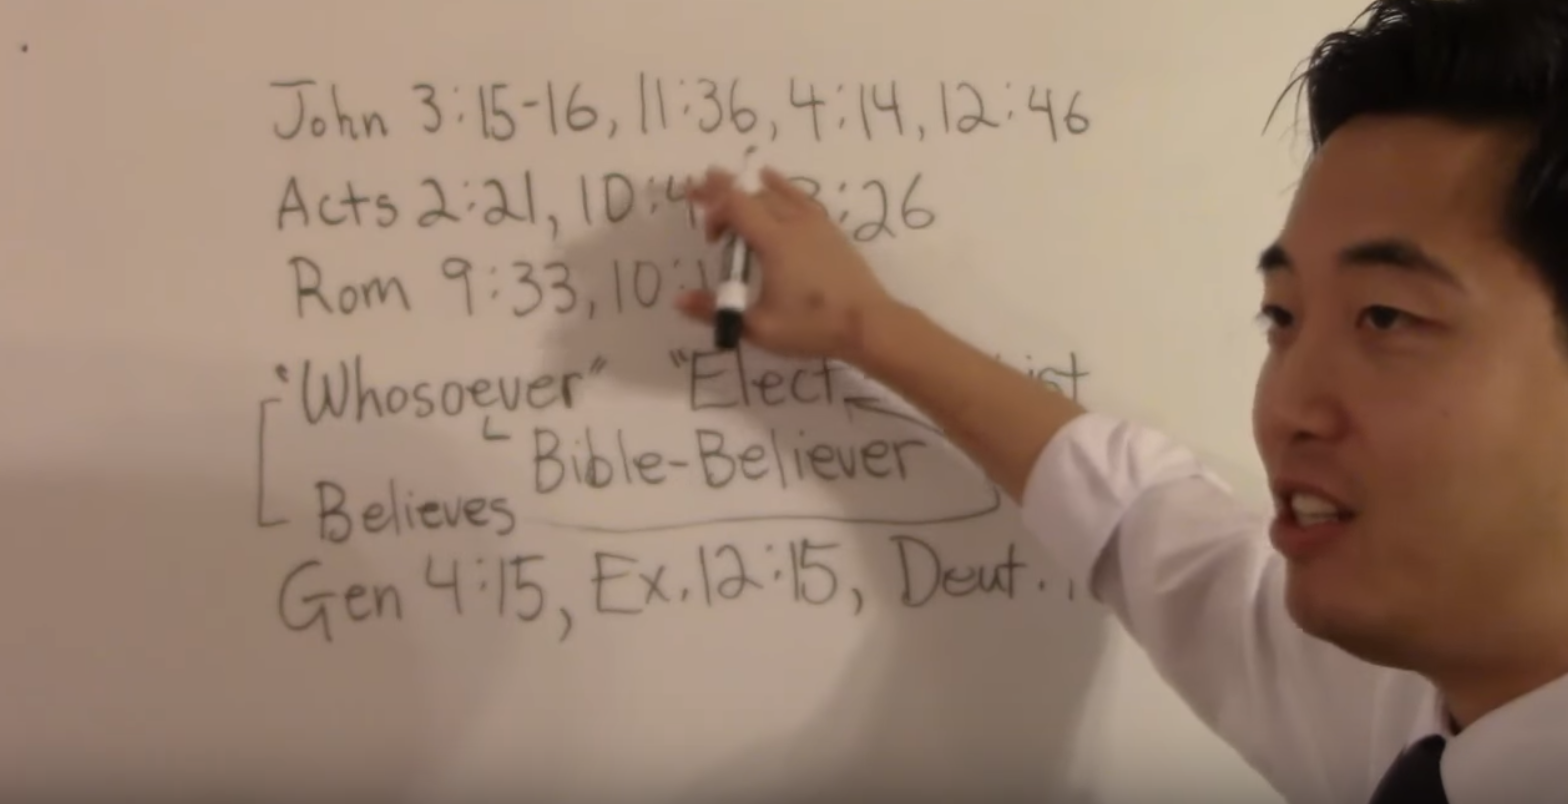 John 3:15-16, 11:36, 4:14, 12:46
Acts 2:21, :26
Rom 9:33,
"Whosoever" "Elect
Bible-Believer
Believes
Gen 4:15, Ex. 12:15, Deut.